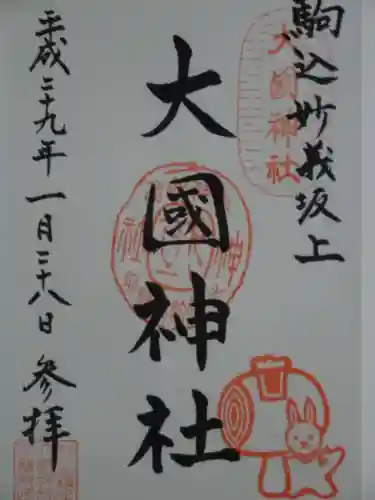 駒込妙義坂上
大國神社
大國神社
平成二十九年一月二十八日 参拝